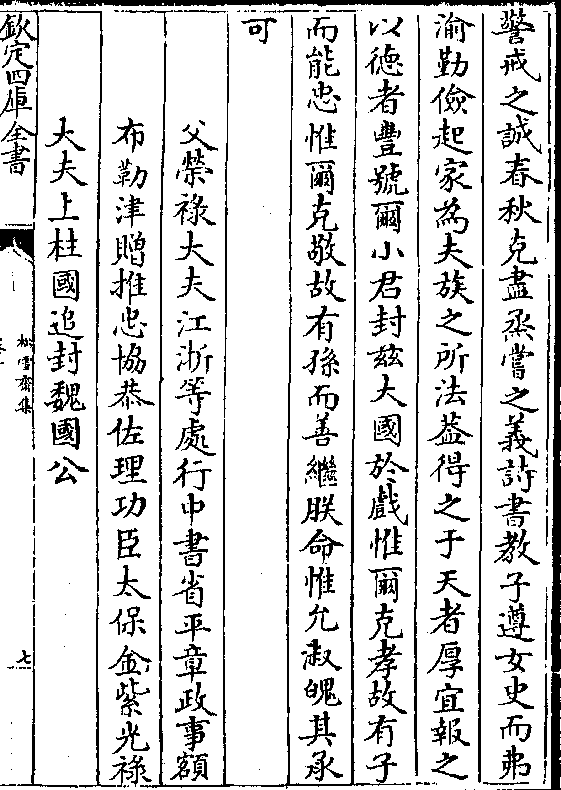 警戒之誠春秋克盡烝嘗之義詩書教子遵女史而弗
渝勤儉起家為夫族之所法葢得之于天者厚宜報之
以徳者豐號爾小君封兹大國於戲惟爾克孝故有子
而能忠惟爾克敬故有孫而善繼朕命惟允淑魄其承
可
父榮禄大夫江浙等處行中書省平章政事額
布勒津贈推忠協恭佐理功臣太保金紫光禄
大夫上柱國追封魏國公
欽定四庫全書
松雪齋集
七